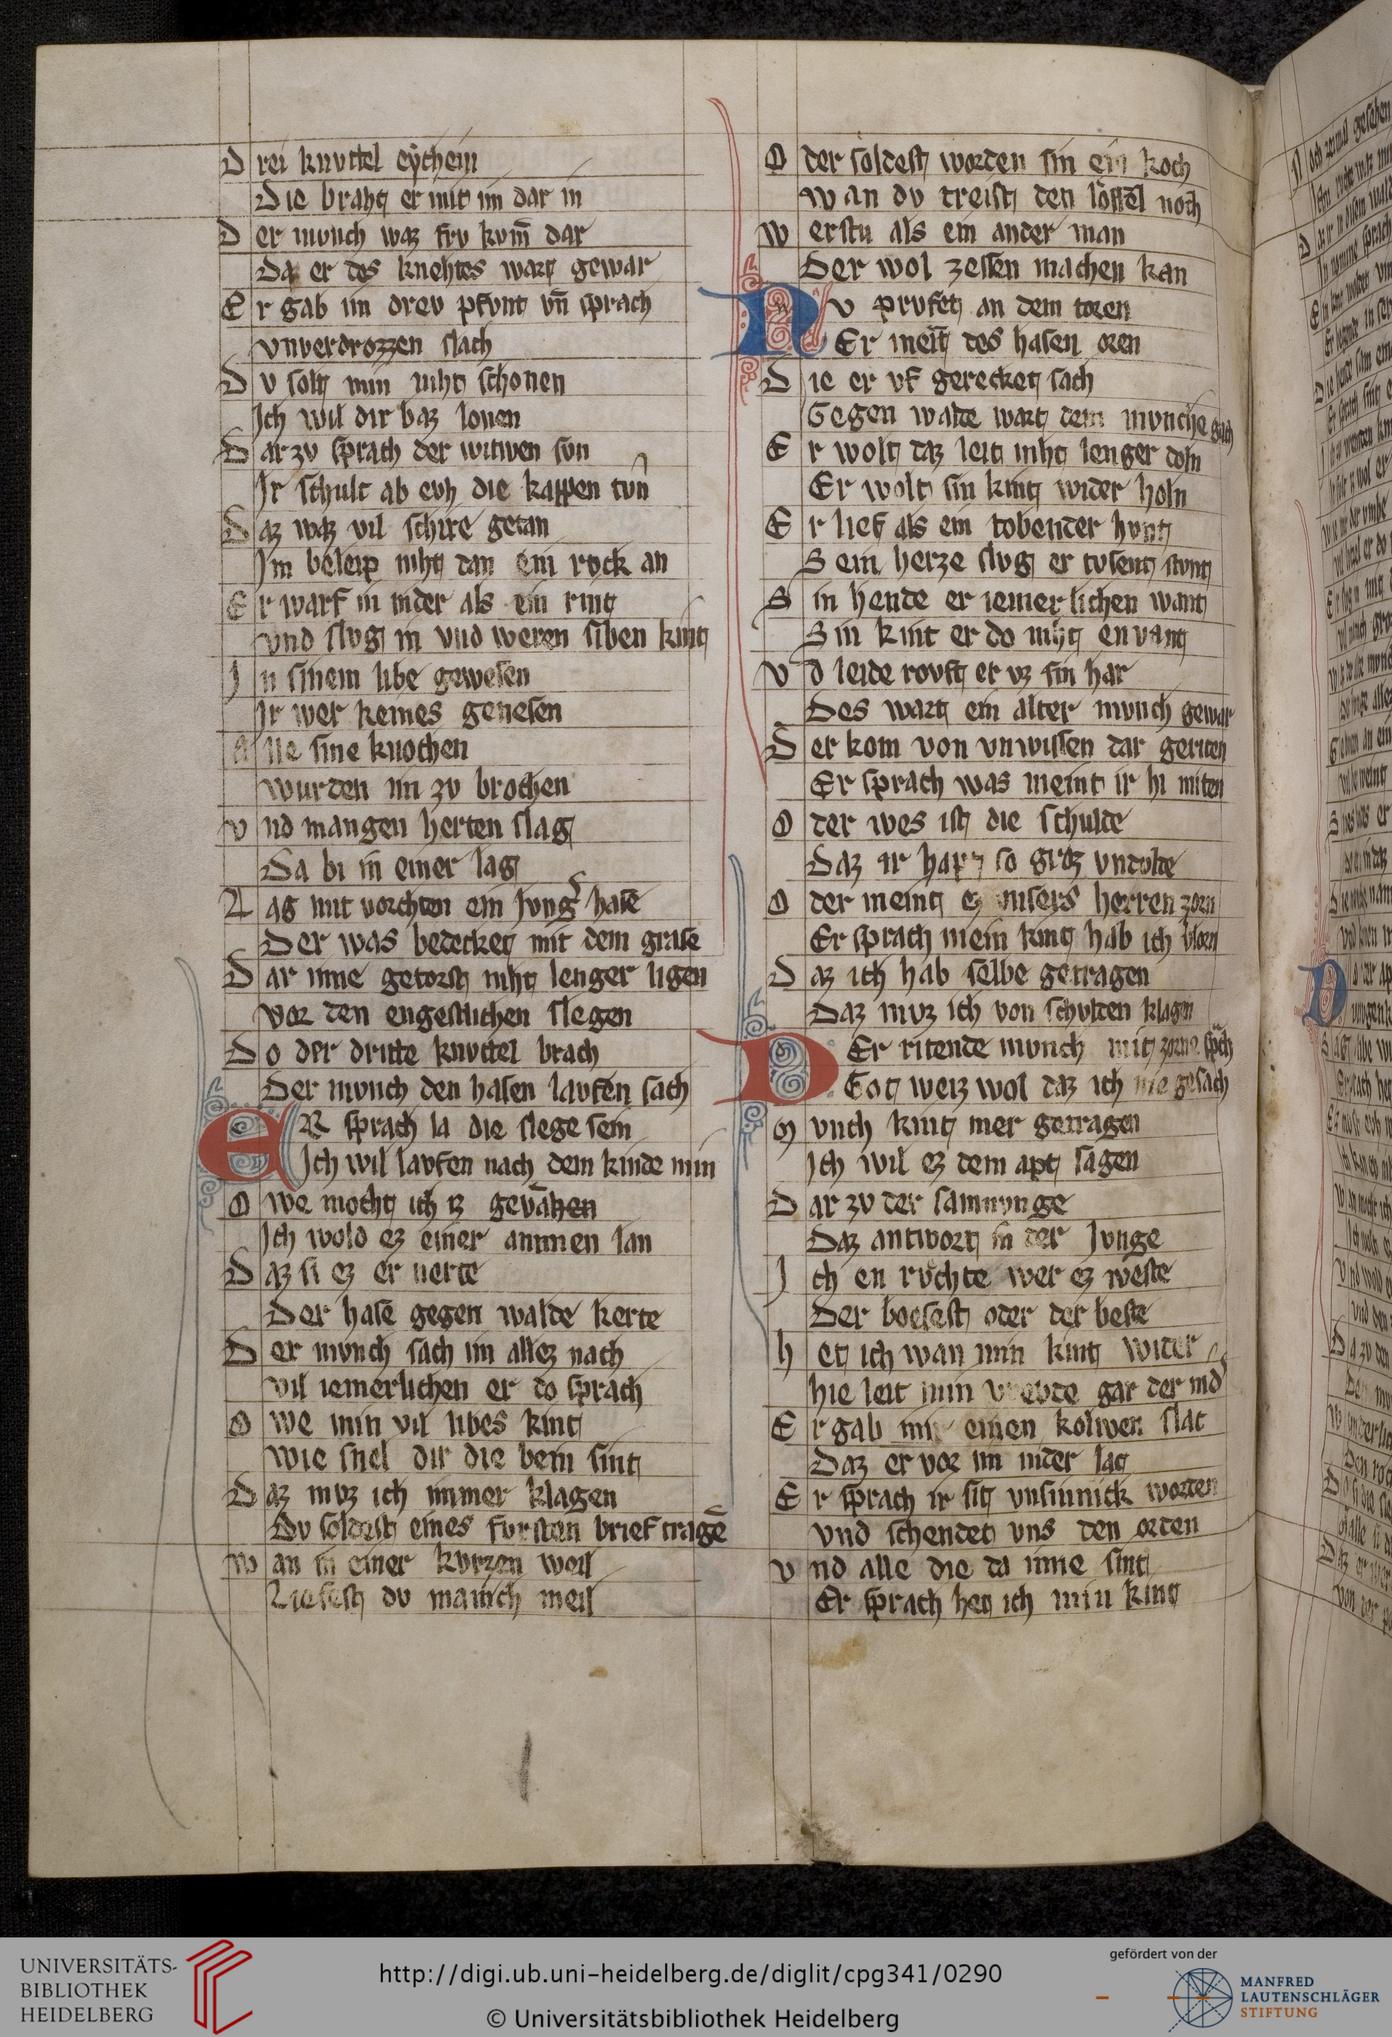 Drei knvttel eychein
Die braht er mit im dar in
Der mvnch waz frv kvm̄ dar
Da er des knehtes wart gewar
Er gab im drev pfvnt vn̄ sprach
Vnverdrozzen slach
Dv solt min niht schonen
Ich wil dir baz lonen
Dar zv sprach der witwen svn
Ir schult ab evh die kappen tvn
Daz waz vil schire getan
Im beleip niht dan ein rock an
Er warf in nider als ein rint
Vnd slvg in vnd weren siben kint
In sinem libe gewesen
Ir wer keines genesen
Alle sine knochen
Wurden im zv brochen
Vnd mangen herten slag
Da bi in einer lag
Lag mit vorchten ein Jvng hase
Der was bedecket mit dem grase
Dar inne getorst niht lenger ligen
Vor den engestlichen slegen
Do der dritte knvttel brach
Der mvnch den hasen lavfen sach
ER sprach la die slege sein
Ich wil lavfen nach dem kinde min
Owe mocht ich iz gevahen
Ich wold ez einer ammen lan
Daz si ez er nerte
Der hase gegen walde kerte
Der mvnch sach im allez nach
Vil iemerlichen er do sprach
Owe min vil libes kint
Wie snel dir die bein sint
Daz mvz ich immer klagen
Dv soldest eines fvrsten brief tragē
Wan in einer kvrzen weil
Liefest dv manich meil
Oder soldest worden sin ein koch
Wan dv treist den löffel noch
Werstu als ein ander man
Der wol zessen machen kan
NV prvfet an dem toren
Er meit des hasen oren
Die er vf gerecket sach
Gegen walde wart dem mvnche gach
Er wolt daz leit niht lenger doln
Er wolt sin kint wider holn
Er lief als ein tobender hvnt
Sein herze slvg er tvsent stvnt
Sin hende er iemerlichen want
Sin kint er do niht en vant
Vō leide rovft er vz sin har
Des wart ein alter mvnch gewar
Der kom von vnwissen dar geriten
Er sprach was meint ir hi miten
Oder wes ist die schulde
Daz ir hapt so groz vndvlde
Oder meint ez vnsers herren zorn
Er sprach mein kint hab ich vlorn
Daz ich hab selbe getragen
Daz mvz ich von schvlden klagn
DEr ritende mvnch mit zorne sp̄ch
Got weiz wol daz ich nie gesach
Mvnch kint mer getragen
Ich wil ez dem apt sagen
Dar zv der samnvnge
Daz antwort im der Jvnge
Ich en rvchte wer ez weste
Der boesest oder der beste
Het ich wan min kint wider
Hie leit min vrevde gar der nid
Er gab mir einen kolwen slac
Daz er vor im nider lag
Er sprach ir sit vnsinnick worden
Vnd schendet vns den orden
Vnd alle die da inne sint
Er sprach het ich min kint
UNIVERSITÄTS-
BIBLIOTHEK
HEIDELBERG
http://digi.ub.uni-heidelberg.de/diglit/cpg341/0290
© Universitätsbibliothek Heidelberg
gefördert von der
MANFRED
LAUTENSCHLÄGER
STIFTUNG